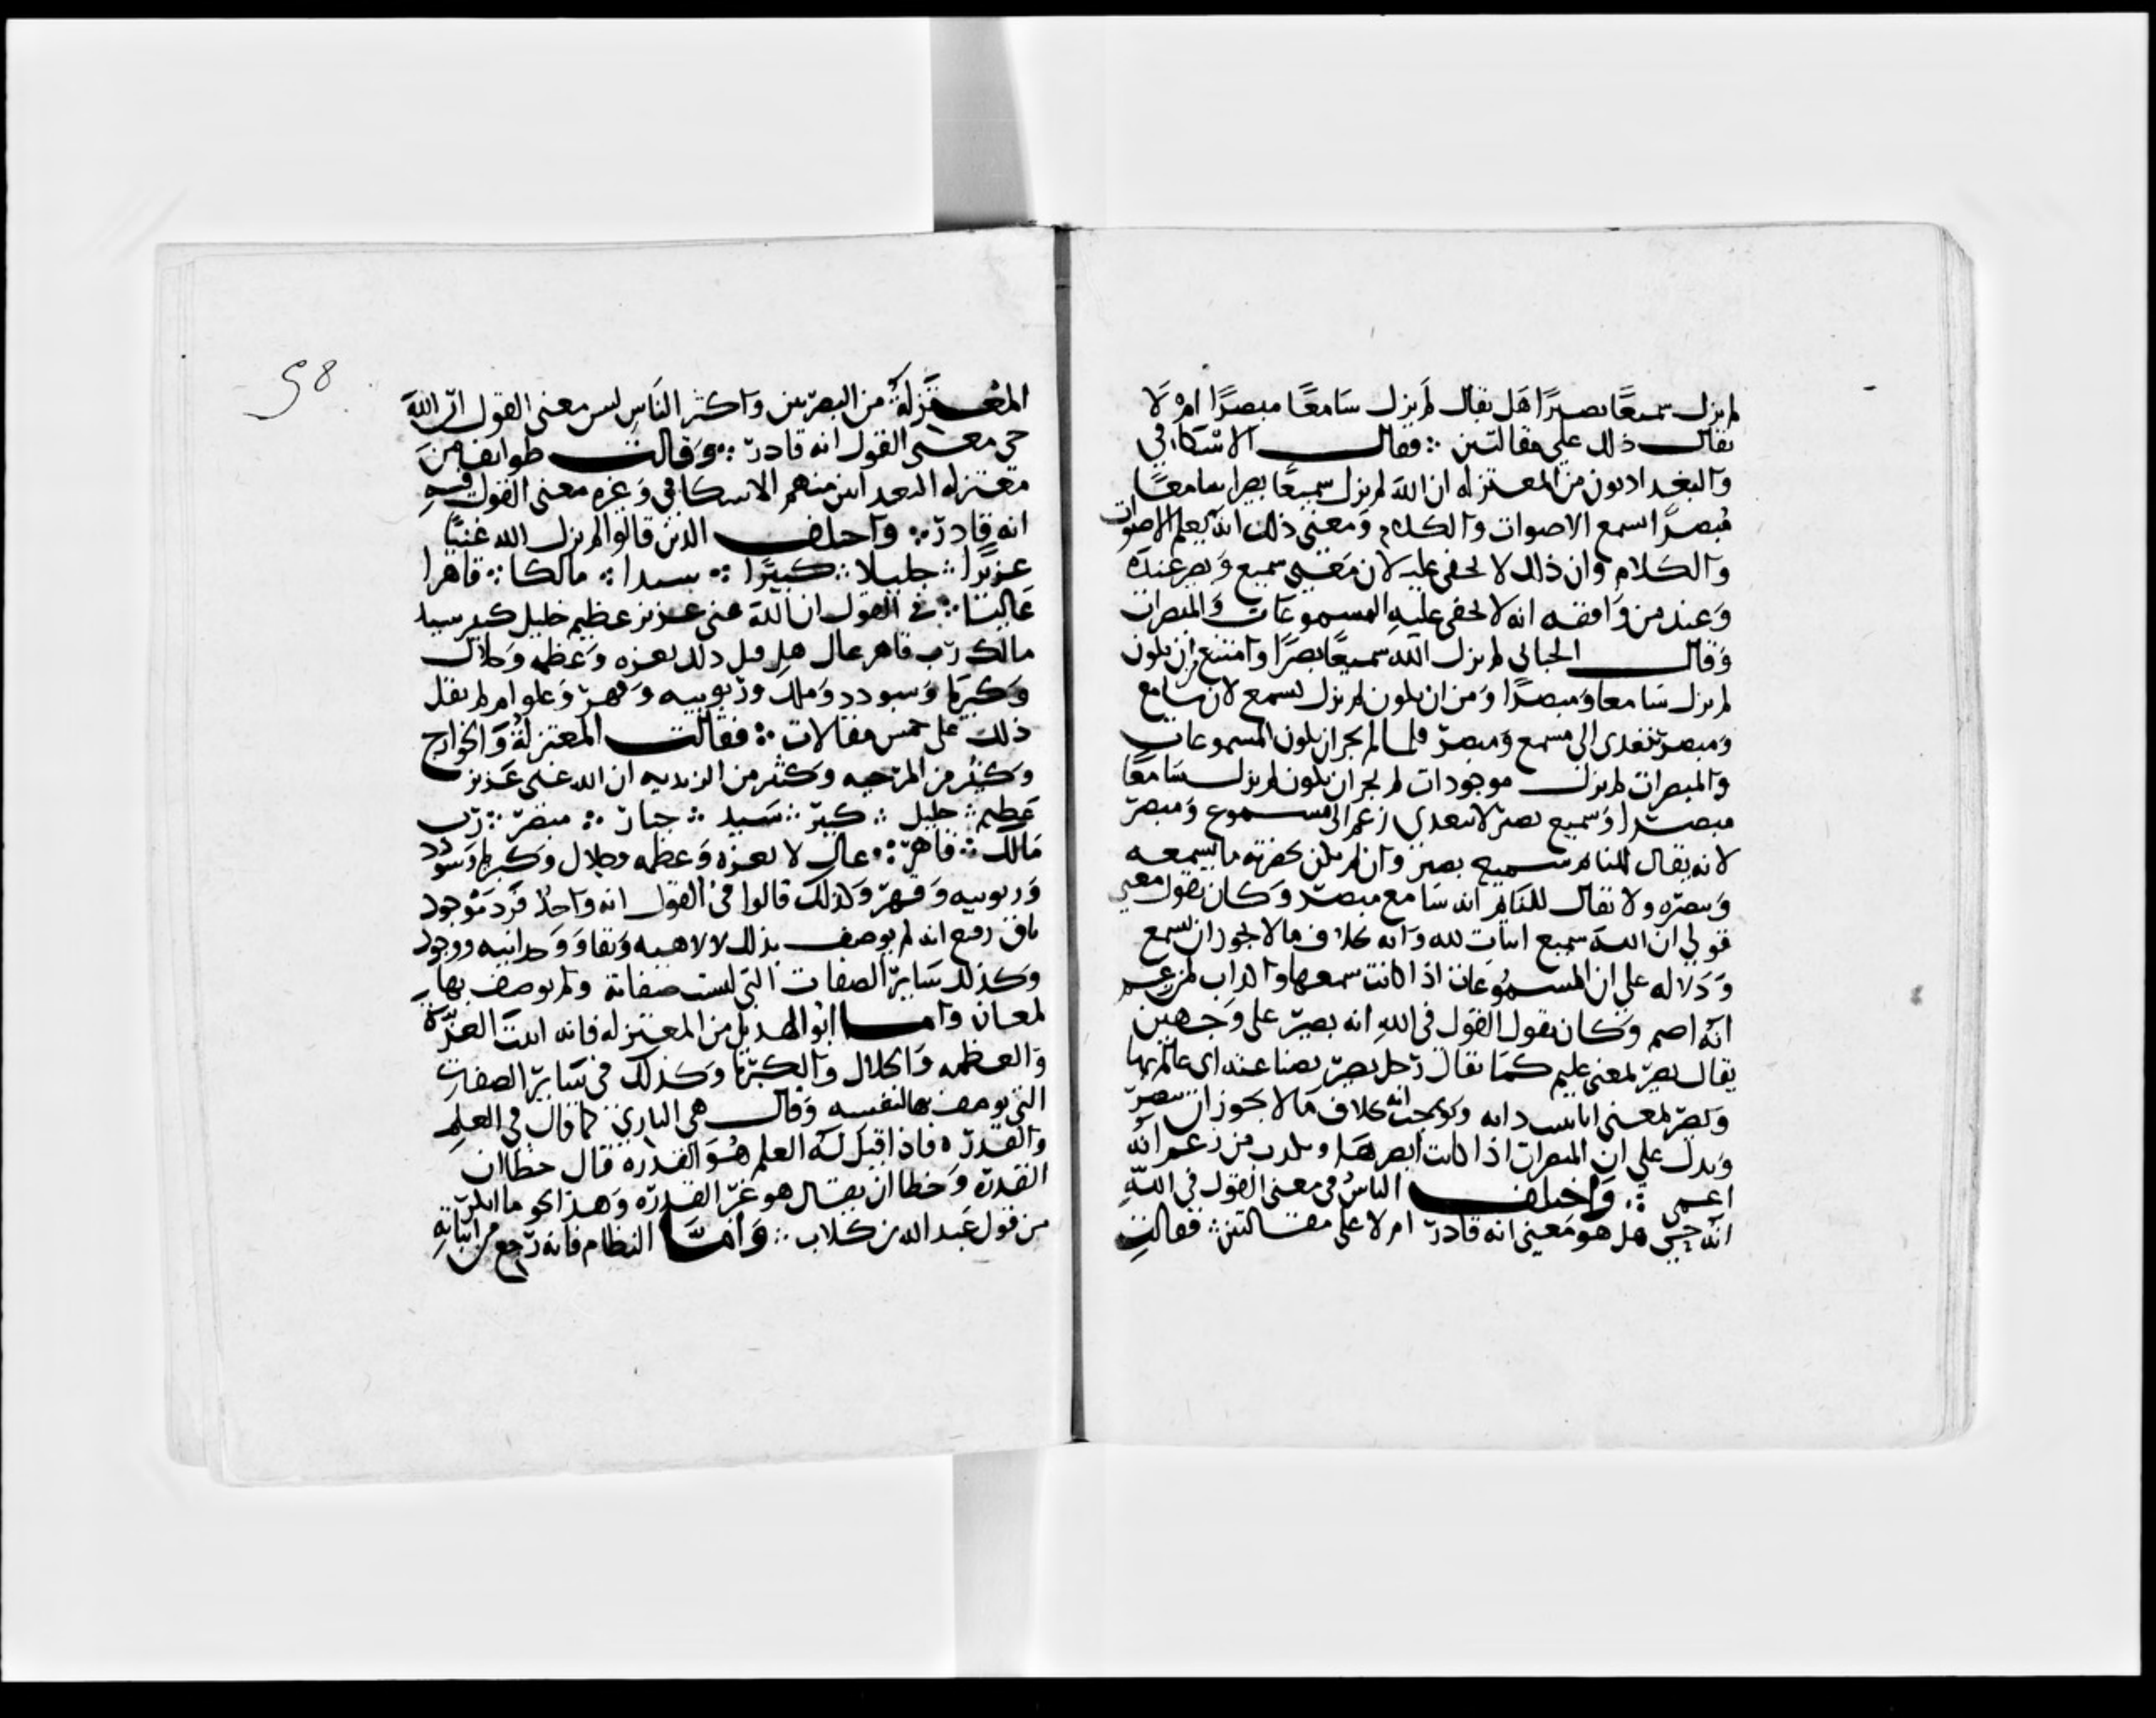 لم يزل سميعًا بصيرًا هل يقال لم يزل سَامعًا مبصرًا ام لا
يقال ذلك علي مقالتين ∴ فقال الاسكافي
والبغداديون من المعتزله ان الله لم يزل سميعًا بصيرا سامعًا
مُبصرًا يسمع الاصوات والكلام وَمعني ذلك انه يعلم الاصوات
والكلام وان ذلك لا يخفى عليه لان مَعني سميع وَبصير عنده
وَعند من وَافقه انه لا يخفى عليه المسموعات وَالمبصرات
وَقال الجبائي لم يزل الله سميعًا بصيرًا وامتنع من ان يكون
لم يزل سَامعا وَمبصرًا وَمن ان يكون لم يزل يسمع لان سامع
وَمبصر تتعدى الى مسمع وَمبصر فلما لم يجز ان يكون المسموعات
والمبصرات لم يزل موجودات لم يجز ان يكون لم يزل سَامعًا
مبصرا وَسميع بصير لا يتعدي زعم الى مسموع وَمبصر
لانه يقال للنايم سميع بصير وان لم يكن بحضرته ما يسمعه
وَيبصره ولا يقال للنايم انه سَامع مبصر وَكان يقول معني
قولي ان الله سميع اثبات لله وَانه بخلاف ما لا يجوز ان يسمع
وَدَلاله علي ان المسمُوعات اذا كانت سمعها واكذاب لمن زعم
انه اصم وَكان يقول القول في الله انه بصير على وَجهين
يقال بصير بمعنى عليم كمَا يقال رَجل بصير بصناعته اى عالم بها
وَبصير بمعنى انا نثبت ذاته وَنوجب انه بخلاف مَا لا يجوز ان يبصر
وَيدل علي ان المبصرات اذا كانت ابصرهَا وَيكذب من زعم انه
اعمى ∴ وَاختلف الناسُ في معنى القول في اللهِ
انه حيّ هل هو مَعني انه قادر ام لا على مقالتين ∴ فقالتِ
98
المعتزلَةُ من البصريين وَاكثر النَاسِ ليس معنى القول ان اللهَ
حي معنى القول انه قادر ∴ وَقالت طوائف من
معتزله البغداديين منهم الاسكافي وَغيره معنى القول فيهِ
انه قادر ∴ واختلف الذين قالوا لم يزل الله غنيًا
عزيزًا ∴ جليلا ∴ كبيرًا ∴ سيدا ∴ مالكا ∴ قاهرا
عَاليا ∴ في القول ان الله غنى عزيز عظيم جليل كبير سيد
مالك رَب قاهر عال هل قيل ذلك لعزه وَعظمه وَجلال
وَكبريا وَسودد وَملك وربوبيه وَقهر وَعلو ام لم يقل
ذلك على خمس مقالات ∴ فقالت المعتزلَةُ وَالخوارج
وَكثير من المرجيه وَكثير من الزيديه ان الله غنى عَزيز
عَظيم ∴ جليل ∴ كبير ∴ سَيد ∴ جبار ∴ مبصر ∴ رَب
مَالك ∴ قاهر ∴ عال لا لعزه وَعظمه وجلال وَكبريا وَسودد
وَربوبيه وَقهر وَكذلك قالوا في القول انه وَاحدٌ فرد مَوجود
باق رفيع انه لم يوصف بذلك لالاهيه وَبقا وَوَحدانيه ووجود
وَكذلك سَاير الصفات التي ليست صفاته وَلم يوصف بها
لمعان وَاما ابو الهذيل من المعتزله فانه اثبت العزة
وَالعظمه وَالجلال وَالكبريا وَكذلك في سَاير الصفات
التي يوصف بها لنفسه وَقال هي الباري كما قال في العلمِ
وَالقدره فاذا قيل له العلم هُوَ القدره قال خطا ان
القدرَه وَخطا ان يقال هو غير القدره وَهذا نحو ما انكر
من قول عَبد الله بن كلاب ∴ وَاما النظام فانه رَجع من اثباته